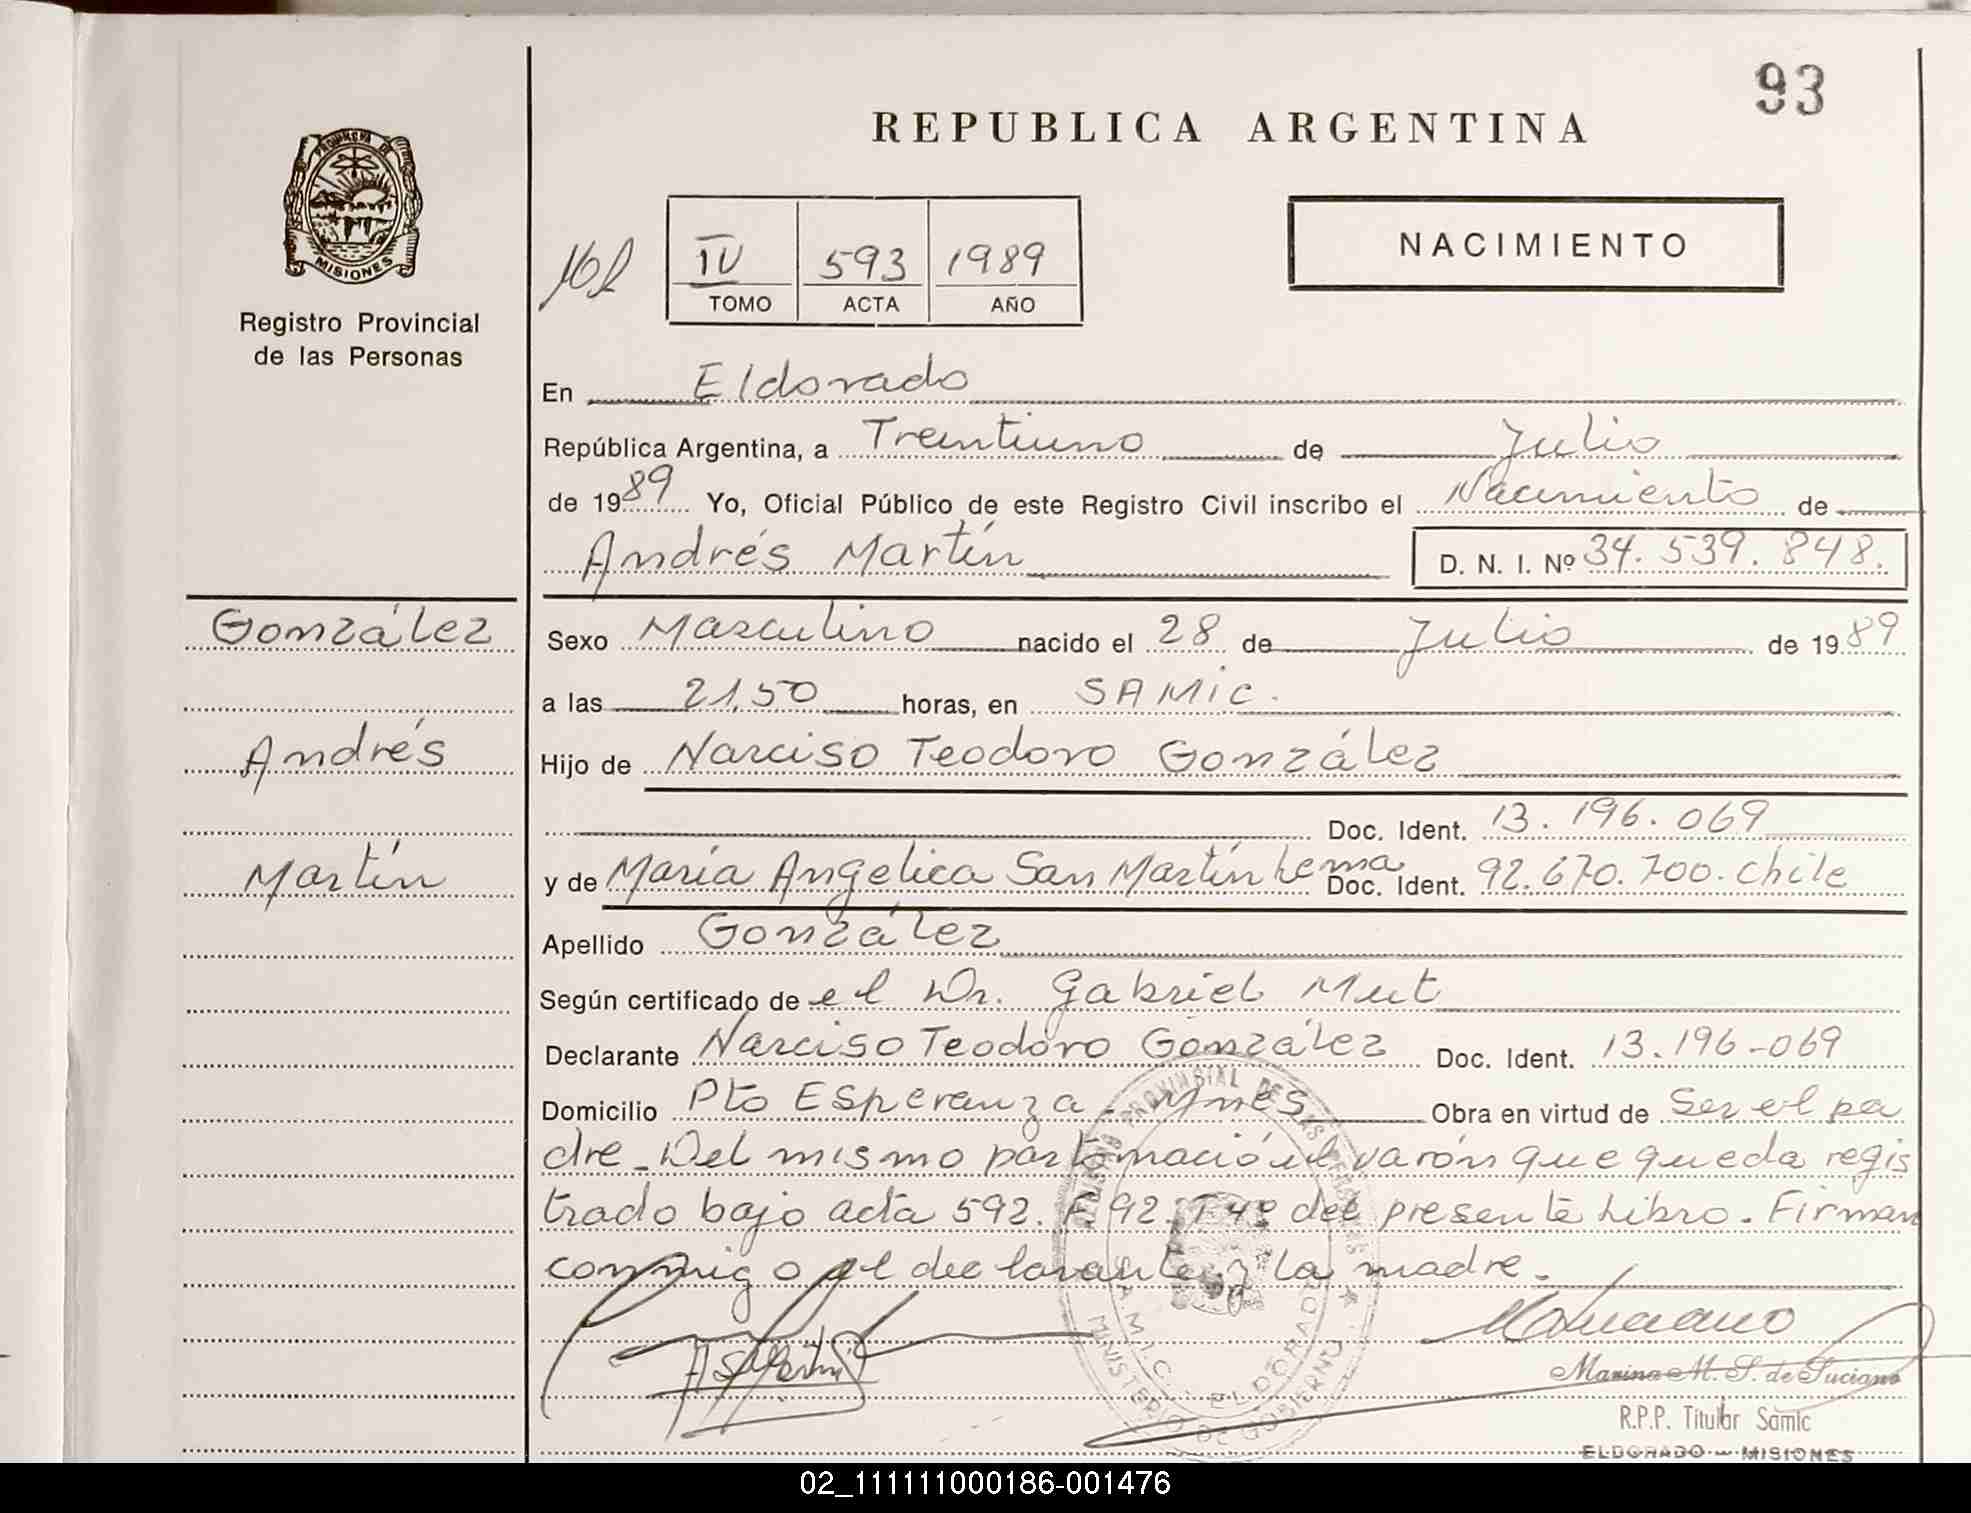 93
REPUBLICA ARGENTINA
PROVINCIA DE
MISIONES
Registro Provincial
de las Personas
IV 593 1989
TOMO ACTA AÑO
NACIMIENTO
En Eldorado
República Argentina, a Treintiuno de Julio
de 1989 Yo, Oficial Público de este Registro Civil inscribo el Nacimiento de
Andrés Martín D. N. I. Nº 34.539.848.
González
Andrés
Martín
Sexo Masculino nacido el 28 de Julio de 1989
a las 21,50 horas, en SAMIC.
Hijo de Narciso Teodoro González
Doc. Ident. 13.196.069
y de María Angelica San Martín Lema Doc. Ident. 92.670.700. Chile
Apellido González
Según certificado de el Dr. Gabriel Mut
Declarante Narciso Teodoro González Doc. Ident. 13.196-069
Domicilio Pto Esperanza. Mnes Obra en virtud de Ser el pa
dre. Del mismo parto nació el varón que queda regis
trado bajo acta 592. F 92. T 4º del presente Libro. Firman
conmigo el declarante y la madre.
REGISTRO PROVINSIAL DE LAS PERSONAS
S.A.M.I.C. ELDORADO
MINISTERIO DE GOBIERNO
Marina M. S. de Luciano
R.P.P. Titular Samic
ELDORADO - MISIONES
02_111111000186-001476